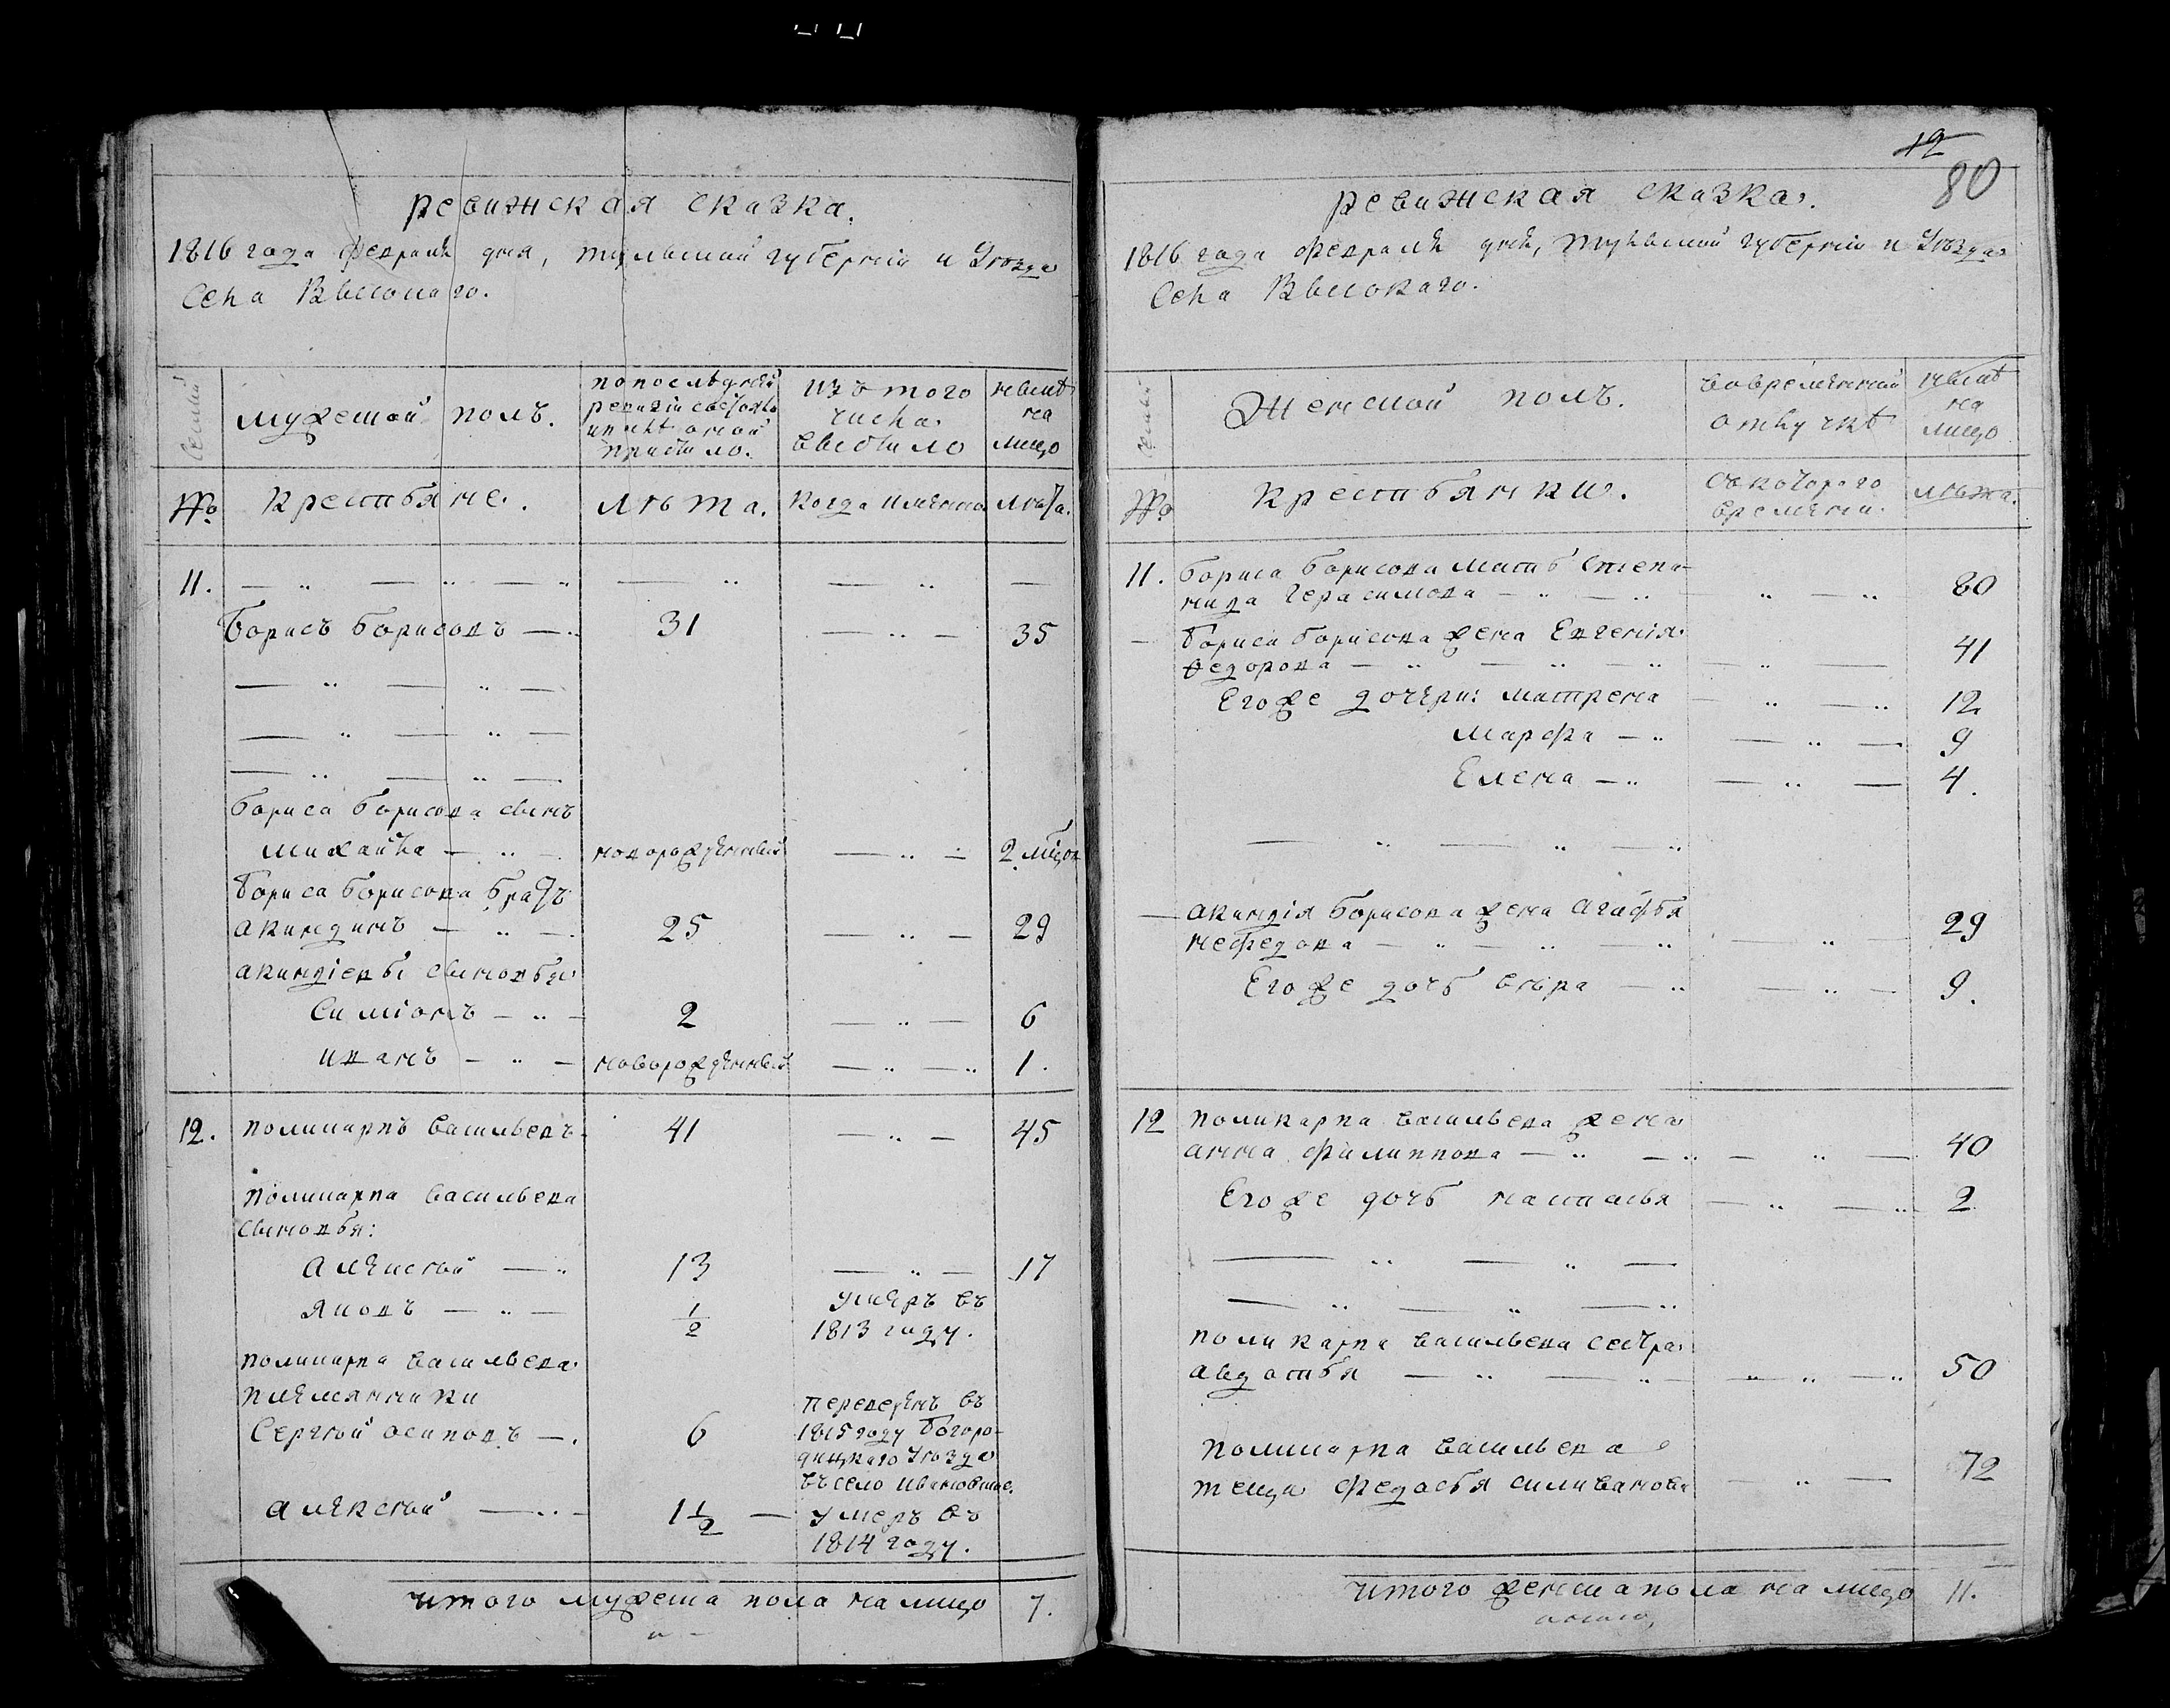 ревижская сказка.
1816 года февраля дня, тульской губернiи и Уѣзда
Села Высокаго.
Семьи
мужеской полъ.
по последней
ревизiи состояло
и после оной
прибыло.
Изъ того
числа
выбыло
ныне
на
лицо
№
Крестьяне.
лѣта.
когда имянно
лѣта.
11. — „ — „ — „ — „ — „ —
Борисъ Борисовъ — „ 31 — „ — 35
— „ — „ —
— „ — „ —
— „ — „ —
Бориса Борисова сынъ
михайла — „ — новорожденный — „ — 2 мѣсяц
Бориса Борисова братъ
акиндинъ — „ — 25 — „ — 29
акиндiевы сыновья
Симiонъ — „ — 2 — „ — 6
иванъ — „ — новорожденный — „ — „ 1.
12. поликарпъ васильевъ 41 — „ — 45
поликарпа васильева
сыновья:
алексѣй — „ 13 — „ — 17
яковъ — „ — 1/2 умеръ въ
1813 году.
поликарпа васильева
племянники
Сергѣй осиповъ — . 6 переведенъ въ
1815 году Богоро-
дицкаго уѣзда
въ село ивановское.
алексѣй — „ — 1 1/2 — умеръ въ
1814 году.
итого мужеска пола на лицо 7.
12
80
ревижская сказка.
1816 года февраля дня, тульской губернiи и Уѣзда
Села Высокаго.
Семьи
Женской полъ.
во временной
отлучкѣ
ныне
на
лицо
№
крестьянки.
съ котораго
времяни.
лѣта.
11. Бориса Борисова мать степа-
нида Герасимова — „ — „ — „ — „ 60
— Бориса Борисова жена Евгенiя
Федорова — „ — „ — „ — „ — 41
Егоже дочери: матрена — „ — „ 12
марфа — „ — „ — 9
Елена — „ — „ — 4.
— „ — „ — „
— акиндiя Борисова жена агафья
нефедова — „ — „ — „ — „ — 29
Егоже дочь вѣра — „ — „ — 9.
12 поликарпа васильева жена
анна филиппова — „ — „ — „ — 40
Егоже дочь наталья — „ — „ 2
— „ — „ —
— „ — „ — „
поликарпа васильева сестра
авдотья — „ — „ — „ — „ 50
поликарпа васильева
теща федосья силиванова — „ — 72
итого женска пола на лицо 11.